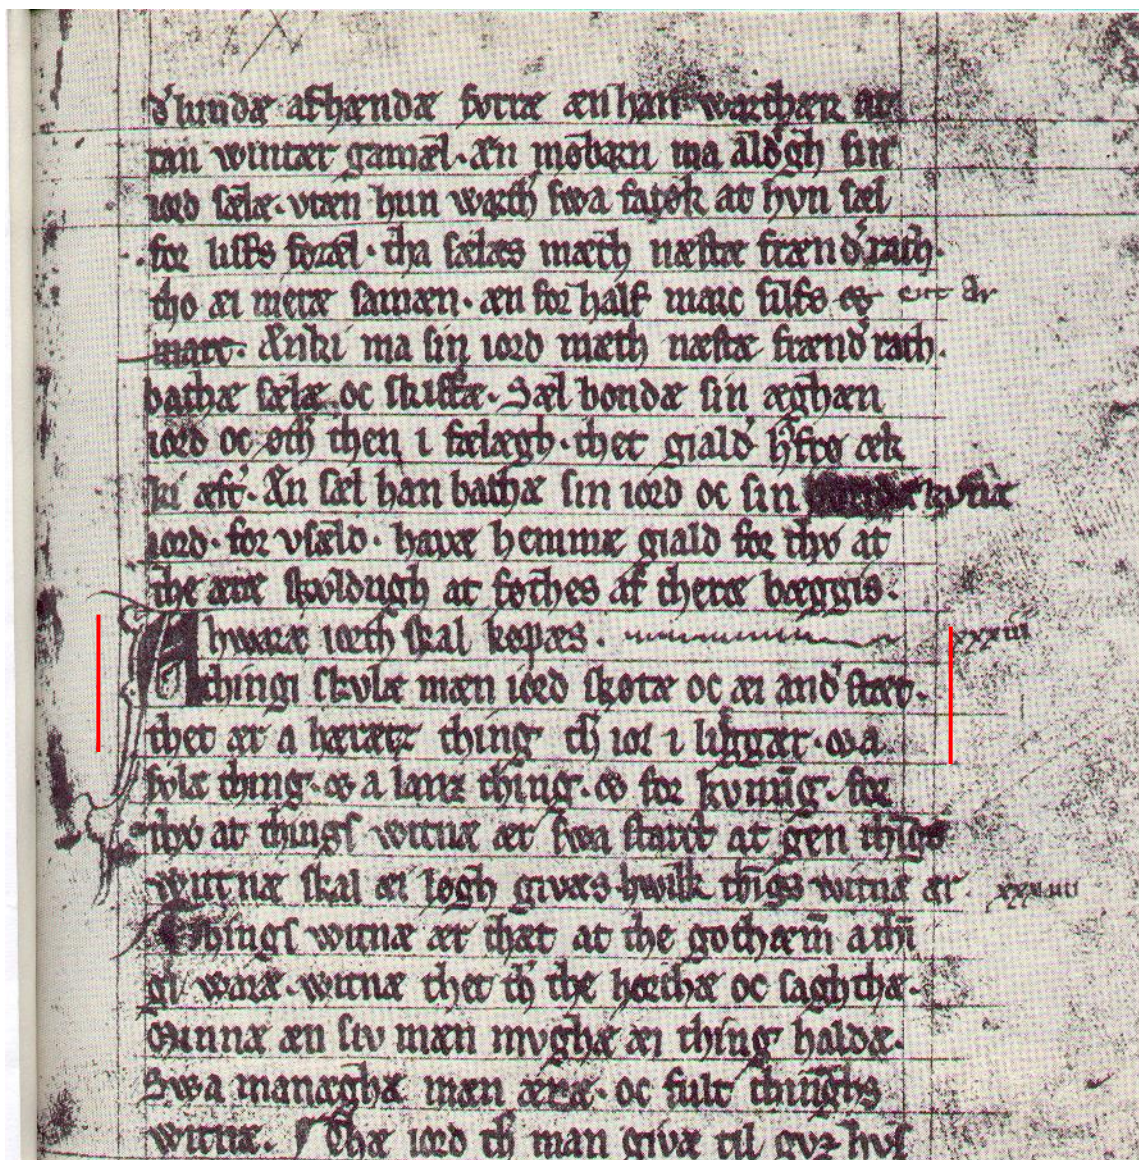 d'lundæ afhændæ fyrræ æn han warthær at
tan wintær gamæl. Æn møbarn ma aldrgh sin
iord sælæ. vtæn hun warth swa fatøk at hvn sæl
for lifs foræl. tha sælæs mæth næstæ frænd' rath.
tho æi meræ samæn. æn for half marc silfs
marc. Ænki ma sin iord mæth næstæ frænd' rath.
bathæ sælæ oc skiftæ. Sæl bondæ sin æghæn
iord oc oth' then i fælægh. thet giald' h'fro æk
ki æft'. Æn sæl han bathæ sin iord oc sin
iord. for vsæld. havæ hemmæ giald for thy at
the æræ skyldugh at føthes af theræ bæggis.
A hwaræ iorth skal køpæs. xxxiii
thingi skvlæ mæn iord skøtæ oc æi and' stæt.
thet ær a hærætz thing th' ior i liggær. a
sylæ thing. a lanz thing. for kvnūg. for
thy at things witnæ ær swa starct at gen thīgs
witnæ skal æi logh givæs hwilk thīgs witnæ ær xxxiiii
Things witnæ ær thæt at the gothæ m̄ a thī
gi waræ. witnæ thet th' the hørthæ oc saghthæ.
Minnæ æn siv mæn mvghæ æi thing haldæ.
Swa manæghæ mæn æræ. oc fult thinghs
witnæ. Thæ iord th' man givæ til gvz hvs